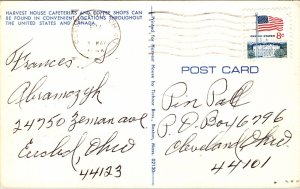 HARVEST HOUSE CAFETERIAS AND COFFEE SHOPS CAN
BE FOUND IN CONVENIENT LOCATIONS THROUGHOUT
THE UNITED STATES AND CANADA.
Frances
Abramczyk
24750 Zeman ave
Euclid, Ohio
44123
POST CARD
8c
Pen Pall
P. O Box 6796
Cleveland Ohio
44101